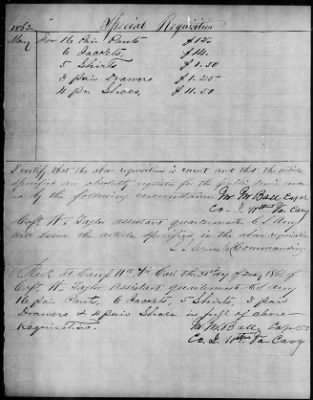 1863 Special Requisition
May For 16 Pair Pants $12.
6 Jackets, $14.
5 Shirts $1.50
3 pair Drawers $1.25
4 pr Shoes, $11.50
I certify that the above requisition is correct and that the articles
specified are absolutely requisite for the public service
by the following M. M. Ball Capt
Co. 11th Va Cavy
Capt. Wm Taylor assistant quartermaster C S Army
will issue the articles specified in the above requisition
Commanding
Recd at Camp 11th Va Cav the day of May 1863 of
Capt. Wm Taylor Assistant Quartermaster C S Army
16 pair Pants, 6 Jackets, 5 Shirts, 3 pair
Drawers & 4 pair Shoes in full of above
Requisition.
M. M. Ball Capt
Co. 11th Va Cavy